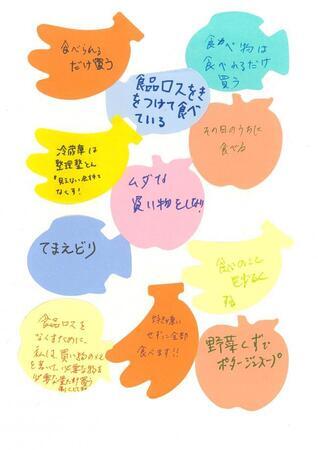 食べられる
だけ買う
食品ロスをき
をつけて食べ
ている
食べ物は
食べれるだけ
買う
冷蔵庫は
整理整とん
なくす!
ムダな
買い物をしない
その日のうちに
食べる
てまえどり
する
食品ロスを
なくすために、
私は、買い物のとき
必要な物を
必要な量だけ買う
好き嫌い
せずに全部
食べます!!
野菜くずで
ポタージュスープ